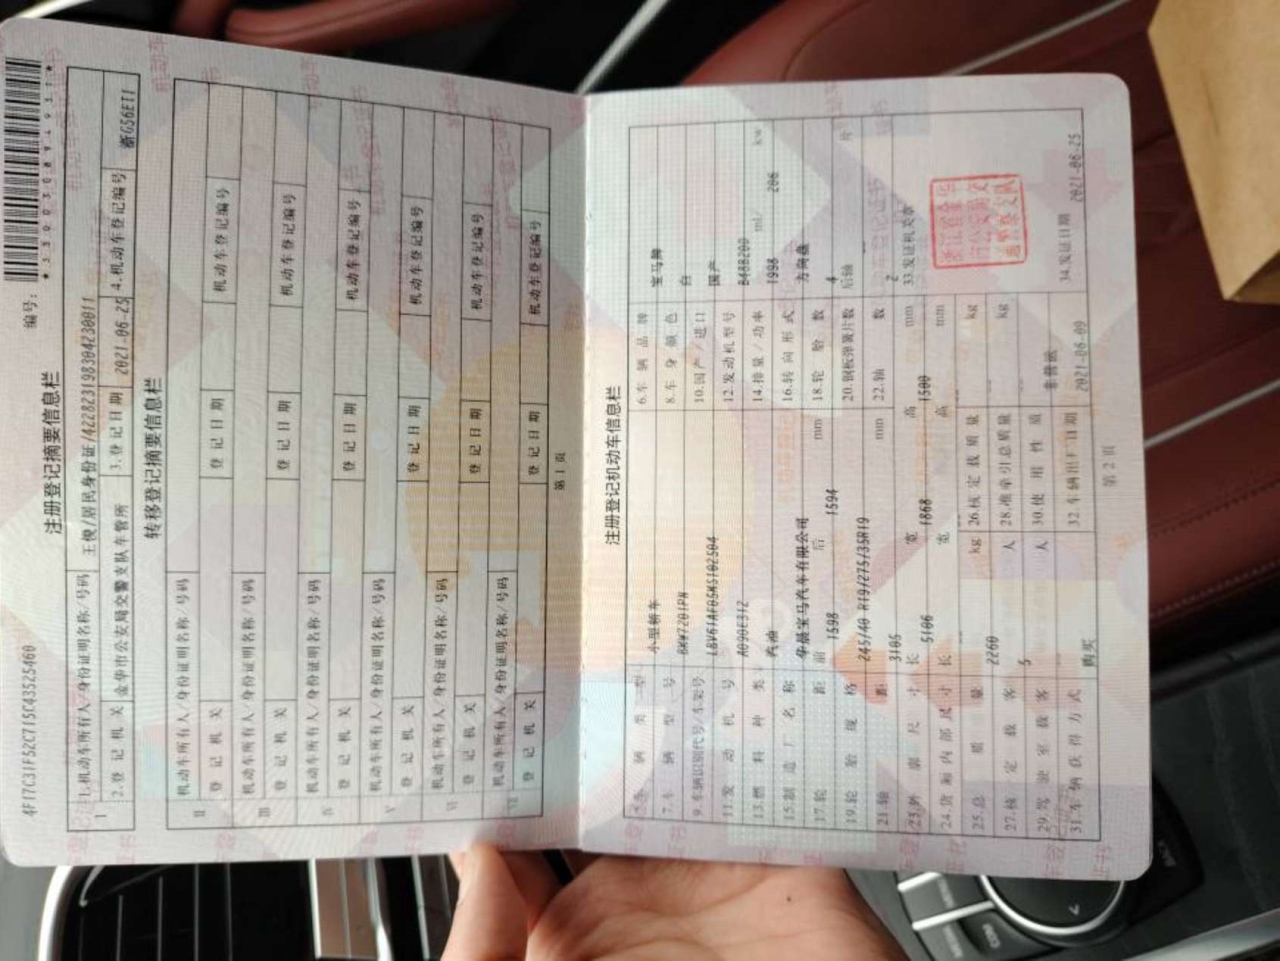 4F17C31F52C7115C43525460
编号:
注册登记摘要信息栏
I
1.机动车所有人/身份证明名称/号码 王俊/居民身份证/422823198304230011
2.登记机关 金华市公安局交警支队车管所 3.登记日期 2021-06-25 4.机动车登记编号 浙G56E11
转移登记摘要信息栏
II
机动车所有人/身份证明名称/号码
登记机关 登记日期 机动车登记编号
III
机动车所有人/身份证明名称/号码
登记机关 登记日期 机动车登记编号
IV
机动车所有人/身份证明名称/号码
登记机关 登记日期 机动车登记编号
V
机动车所有人/身份证明名称/号码
登记机关 登记日期 机动车登记编号
VI
机动车所有人/身份证明名称/号码
登记机关 登记日期 机动车登记编号
VII
机动车所有人/身份证明名称/号码
登记机关 登记日期 机动车登记编号
第 1 页
注册登记机动车信息栏
5.车辆类型 小型轿车 6.车辆品牌 宝马牌
7.车辆型号 BMW7201PM 8.车身颜色 白
9.车辆识别代号/车架号 LBV61AF05MS102504 10.国产/进口 国产
11.发动机号 A090E312 12.发动机型号 B48B20D
13.燃料种类 汽油 14.排量/功率 1998 ml/ 206 kw
15.制造厂名称 华晨宝马汽车有限公司 16.转向形式 方向盘
17.轮距 前 1598 后 1594 mm 18.轮胎数 4
19.轮胎规格 245/40 R19/275/35R19 20.钢板弹簧片数 后轴 片
21.轴距 3105 mm 22.轴数 2
23.外廓尺寸 长 5106 宽 1868 高 1500 mm 33.发证机关章
24.货厢内部尺寸 长 宽 高 mm
25.总质量 2260 kg 26.核定载质量 kg
27.核定载客 5 人 28.准牵引总质量 kg
29.驾驶室载客 人 30.使用性质 非营运
31.车辆获得方式 购买 32.车辆出厂日期 2021-06-09 34.发证日期 2021-06-25
第 2 页